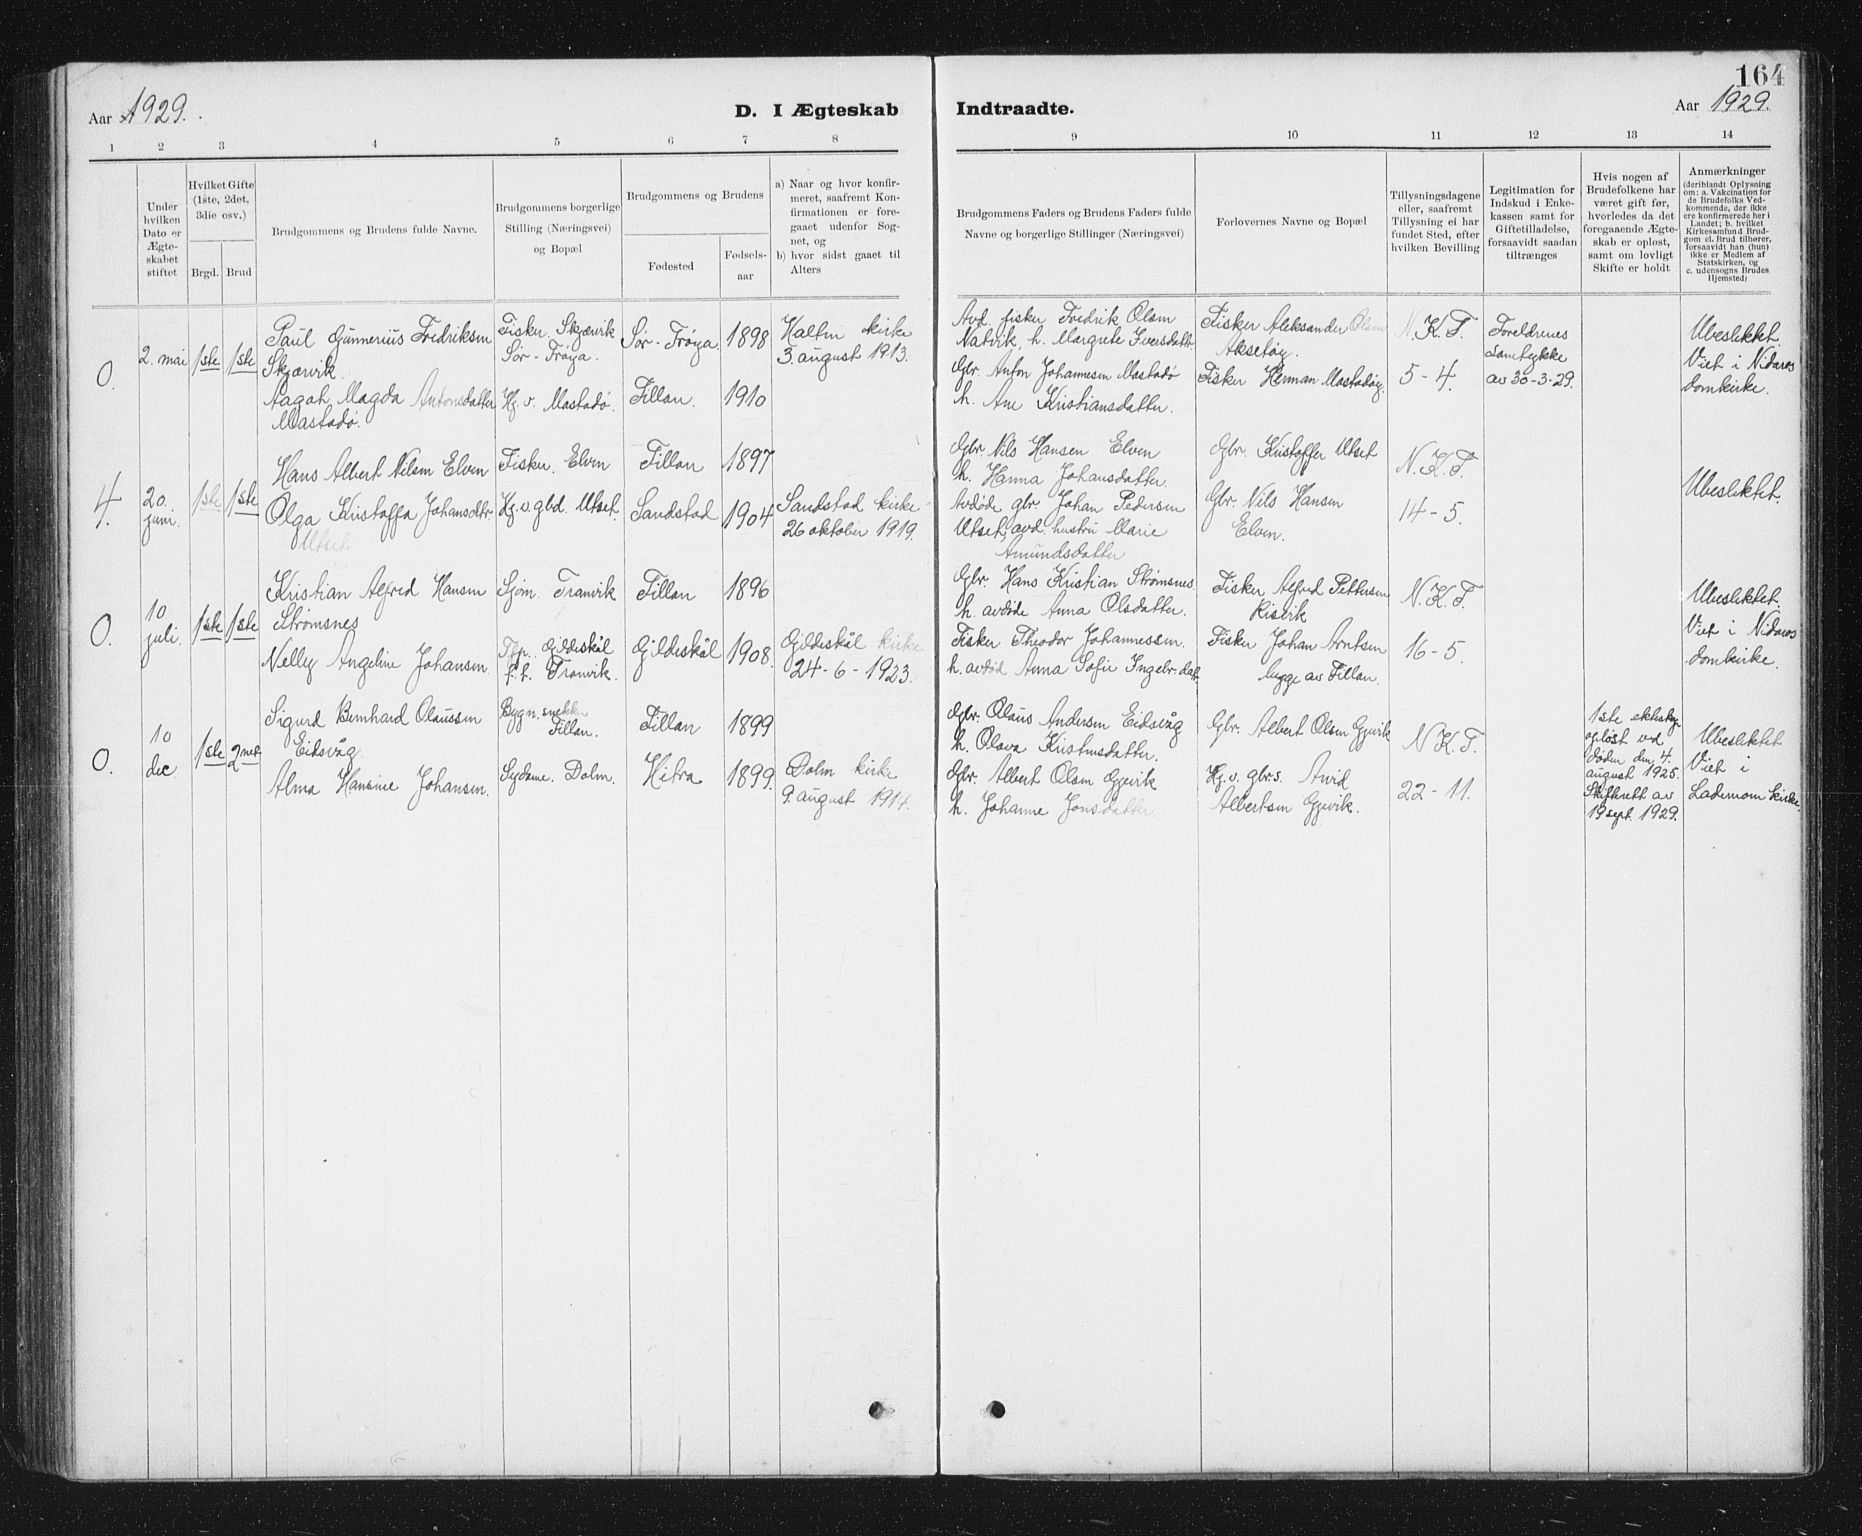 164
Aar 1929.
D. I Ægteskab Indtraadte.
Aar 1929.
1 2 3 4 5 6 7 8 9 10 11 12 13 14
Under hvilken Dato er Ægteskabet stiftet
Hvilket Gifte (1ste, 2det, 3die osv.)
Brgd.
Brud
Brudgommens og Brudens fulde Navne.
Brudgommens borgerlige Stilling (Næringsvei) og Bopæl
Brudgommens og Brudens
Fødested
Fødsels-aar
a) Naar og hvor konfirmeret, saafremt Konfirmationen er foregaaet udenfor Sognet, og
b) hvor sidst gaaet til Alters
Brudgommens Faders og Brudens Faders fulde Navne og borgerlige Stillinger (Næringsvei)
Forlovernes Navne og Bopæl
Tillysningsdagene eller, saafremt Tillysning ei har fundet Sted, efter hvilken Bevilling
Legitimation for Indskud i Enkekassen samt for Giftetilladelse, forsaavidt saadan tiltrænges
Hvis nogen af Brudefolkene har været gift før, hvorledes da det foregaaende Ægteskab er opløst, samt om lovligt Skifte er holdt
Anmærkninger
(deriblandt Oplysning om: a. Vakcination for de Brudefolks Vedkommende, der ikke ere konfirmerede her i Landet; b. hvilket Kirkesamfund Brudgom el. Brud tilhører, forsaavidt han (hun) ikke er Medlem af Statskirken, og c. udensogns Brudes Hjemsted)
0.
2. mai
1ste
1ste
Paul Gunnerius Fredriksen
Skjærvik.
Aagot Magda Antonsdatter
Mastadø.
Fisker. Skjærvik
Sør-Frøya.
Hj. v. Mastadø.
Sør-Frøya
Fillan.
1898
1910
Hallen kirke
3. august 1913.
Avd. fisker Fredrik Olsen
Natvik, h. Margrete Iversdatt.
Gbr. Anton Johannesen Mastadø
h. Ane Kristiansdatter.
Fisker Aleksander Olsen
Aksetøy.
Fisker Herman Mastadøy.
N. K. F.
5 - 4.
Foreldrenes
samtykke
av 30-3-29.
Ubeslektet.
Viet i Nidaros
domkirke.
4.
20.
juni.
1ste
1ste
Hans Albert Nilsen Elven
Olga Kristoffa Johansdtr.
Utset
Fisker. Elven
Hj. v. gbd. Utset.
Fillan
Sandstad
1897
1904
Sandstad kirke
26 oktober 1919.
Gbr. Nils Hansen Elven
h. Hanna Johansdatter.
Avdøde gbr. Johan Pedersen
Utset, avd. hustru Marie
Amundsdatter
Gbr. Kristoffer Utset
Gbr. Nils Hansen
Elven.
N. K. F.
14 - 5.
Ubeslektet.
0.
10
juli.
1ste
1ste
Kristian Alfred Hansen
Strømsnes
Nelly Angeline Johansen.
Sjøm. Tranvik
Gildeskål
f. t. Tranvik.
Fillan
Gildeskål
1896
1908.
Gildeskål kirke
24-6-1923.
Gbr. Hans Kristian Strømsnes
h. avdøde Anna Olsdatter.
Fisker Theodor Johannessen.
h. avdød Anna Sofie Ingebr. datt.
Fisker Alfred Pettersen
Kisvik
Fisker Johan Arntsen
begge av Fillan.
N. K. F.
16 - 5.
Ubeslektet.
Viet i Nidaros
domkirke.
0.
10
dec.
1ste
2net
Sigurd Bernhard Olaussen
Eidsvåg
Alma Hansine Johansen.
Bygn. snekker
Fillan.
Sydame. Dolm.
Fillan
Hitra
1899
1899.
Dolm kirke
9. august 1914.
Gbr. Olaus Andersen Eidsvåg
h. Olava Kristensdatter.
Gbr. Albert Olsen Gjevik
h. Johanne Jonsdatter.
Gbr. Albert Olsen Gjevik
Hj. v. gbr. s. Arvid
Albertsen Gjevik.
N. K. F.
22 - 11.
1ste ekteskap
opløst ved
døden den 4.
august 1925.
Skifterett av
19 sept. 1929.
Ubeslektet
Viet i
Lademoen kirke.